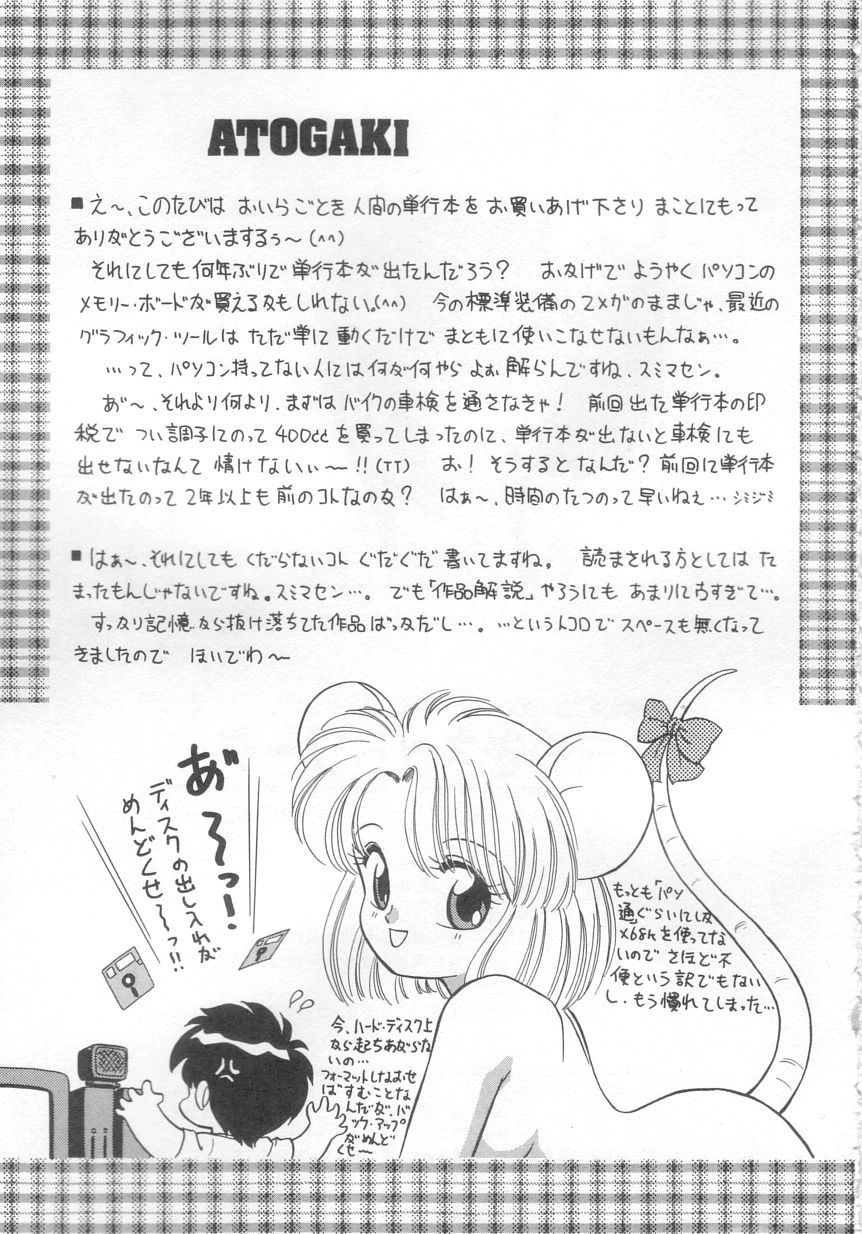 ATOGAKI
■え〜、このたびは おいらごとき人間の単行本を お買いあげ下さり まことにもって
ありがとうございまするぅ〜(^^)
それにしても何年ぶりで単行本が出たんだろう? おかげで ようやく パソコンの
メモリー・ボードが買えるかもしれない。(^^) 今の標準装備の2メガのままじゃ、最近の
グラフィック・ツールは ただ単に 動くだけで まともに使いこなせないもんなぁ…。
…って、パソコン持ってない人には何が何やら よぉ解らんですね、スミマセン。
あ゛〜、それより何より、まずは バイクの車検を通さなきゃ! 前回出た単行本の印
税で つい調子にのって 400ccを買ってしまったのに、単行本が出ないと車検にも
出せないなんて 情けないぃ〜!!(TT) お!そうすると なんだ?前回に単行本
が出たのって 2年以上も前のコトなのか? はぁ〜、時間のたつのって早いねぇ…シミジミ
■はぁ〜、それにしても くだらないコト ぐだぐだ書いてますね。 読まされる方としては た
まったもんじゃないですね。スミマセン…。でも「作品解説」やろうにも あまりに古すぎて…。
すっかり記憶から抜け落ちてた作品ばっかだし…。…というトコロで スペースも無くなって
きましたので ほいでわ〜
あ゛〜っ!
ディスクの出し入れが
めんどくせ〜っ!!
もっとも「パソ
通」ぐらいにしか
X68kを使ってな
いので さほど不
便という訳でもない
し、もう慣れてしまった…
今、ハード・ディスク上
から起ちあがらな
いの…
フォーマットしなおせ
ばすむことな
んだが、バッ
ク・アップ
がめんど
くせ〜